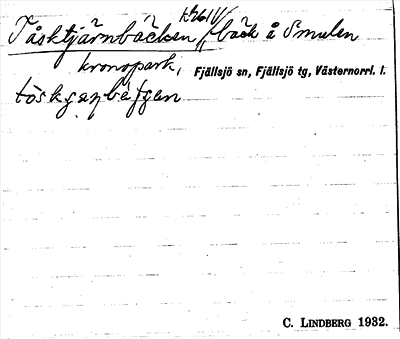 Tåsktjärnbäcken // bäck å Smulen
kronopark, Fjällsjö sn, Fjällsjö tg, Västernorrl. l.
C. LINDBERG 1932.